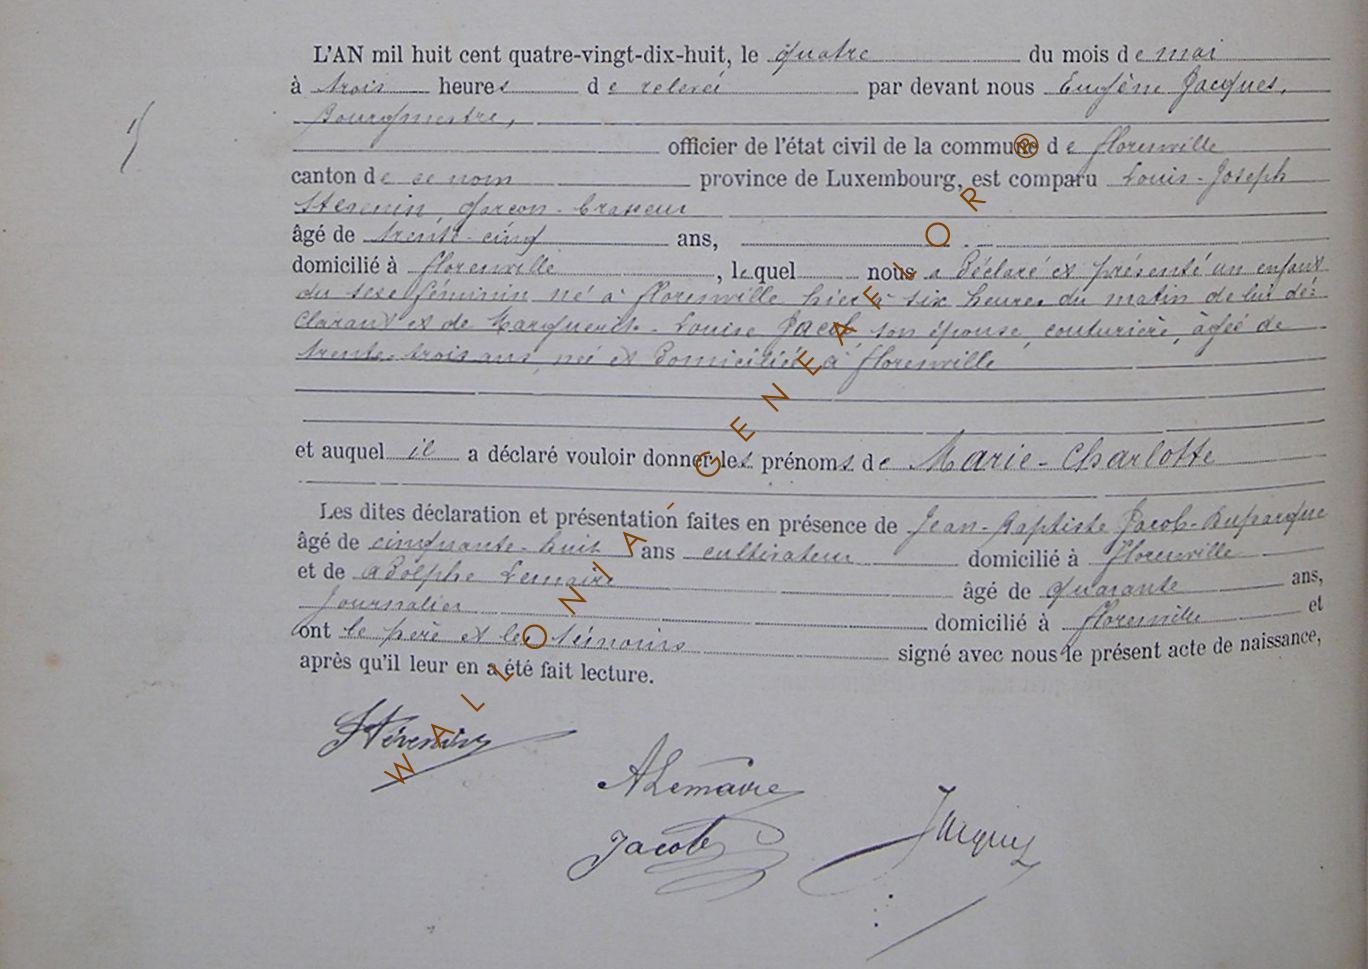 L'AN mil huit cent quatre-vingt-dix-huit, le quatre du mois de mai
à trois heures de relevée par devant nous Eugène Jacques,
Bourgmestre,
officier de l'état civil de la commune de Florenville
canton de ce nom province de Luxembourg, est comparu Louis-Joseph
Stévenin, garçon-brasseur
âgé de trente-cinq ans,
domicilié à Florenville, lequel nous a déclaré et présenté un enfant
du sexe féminin né à Florenville hier à six heures du matin de lui dé-
clarant et de Marguerite-Louise Jacob, son épouse, couturière, âgée de
trente-trois ans, née et domiciliée à Florenville
et auquel il a déclaré vouloir donner les prénoms de Marie-Charlotte
Les dites déclaration et présentation faites en présence de Jean-Baptiste Jacob-Duparque
âgé de cinquante-huit ans cultivateur domicilié à Florenville
et de Adolphe Lemaire âgé de quarante ans,
Journalier domicilié à Florenville et
ont le père et les témoins signé avec nous le présent acte de naissance,
après qu'il leur en a été fait lecture.
Stévenin
ALemaire
Jacob
Jacques
WALLONIA GENEAFLOR®